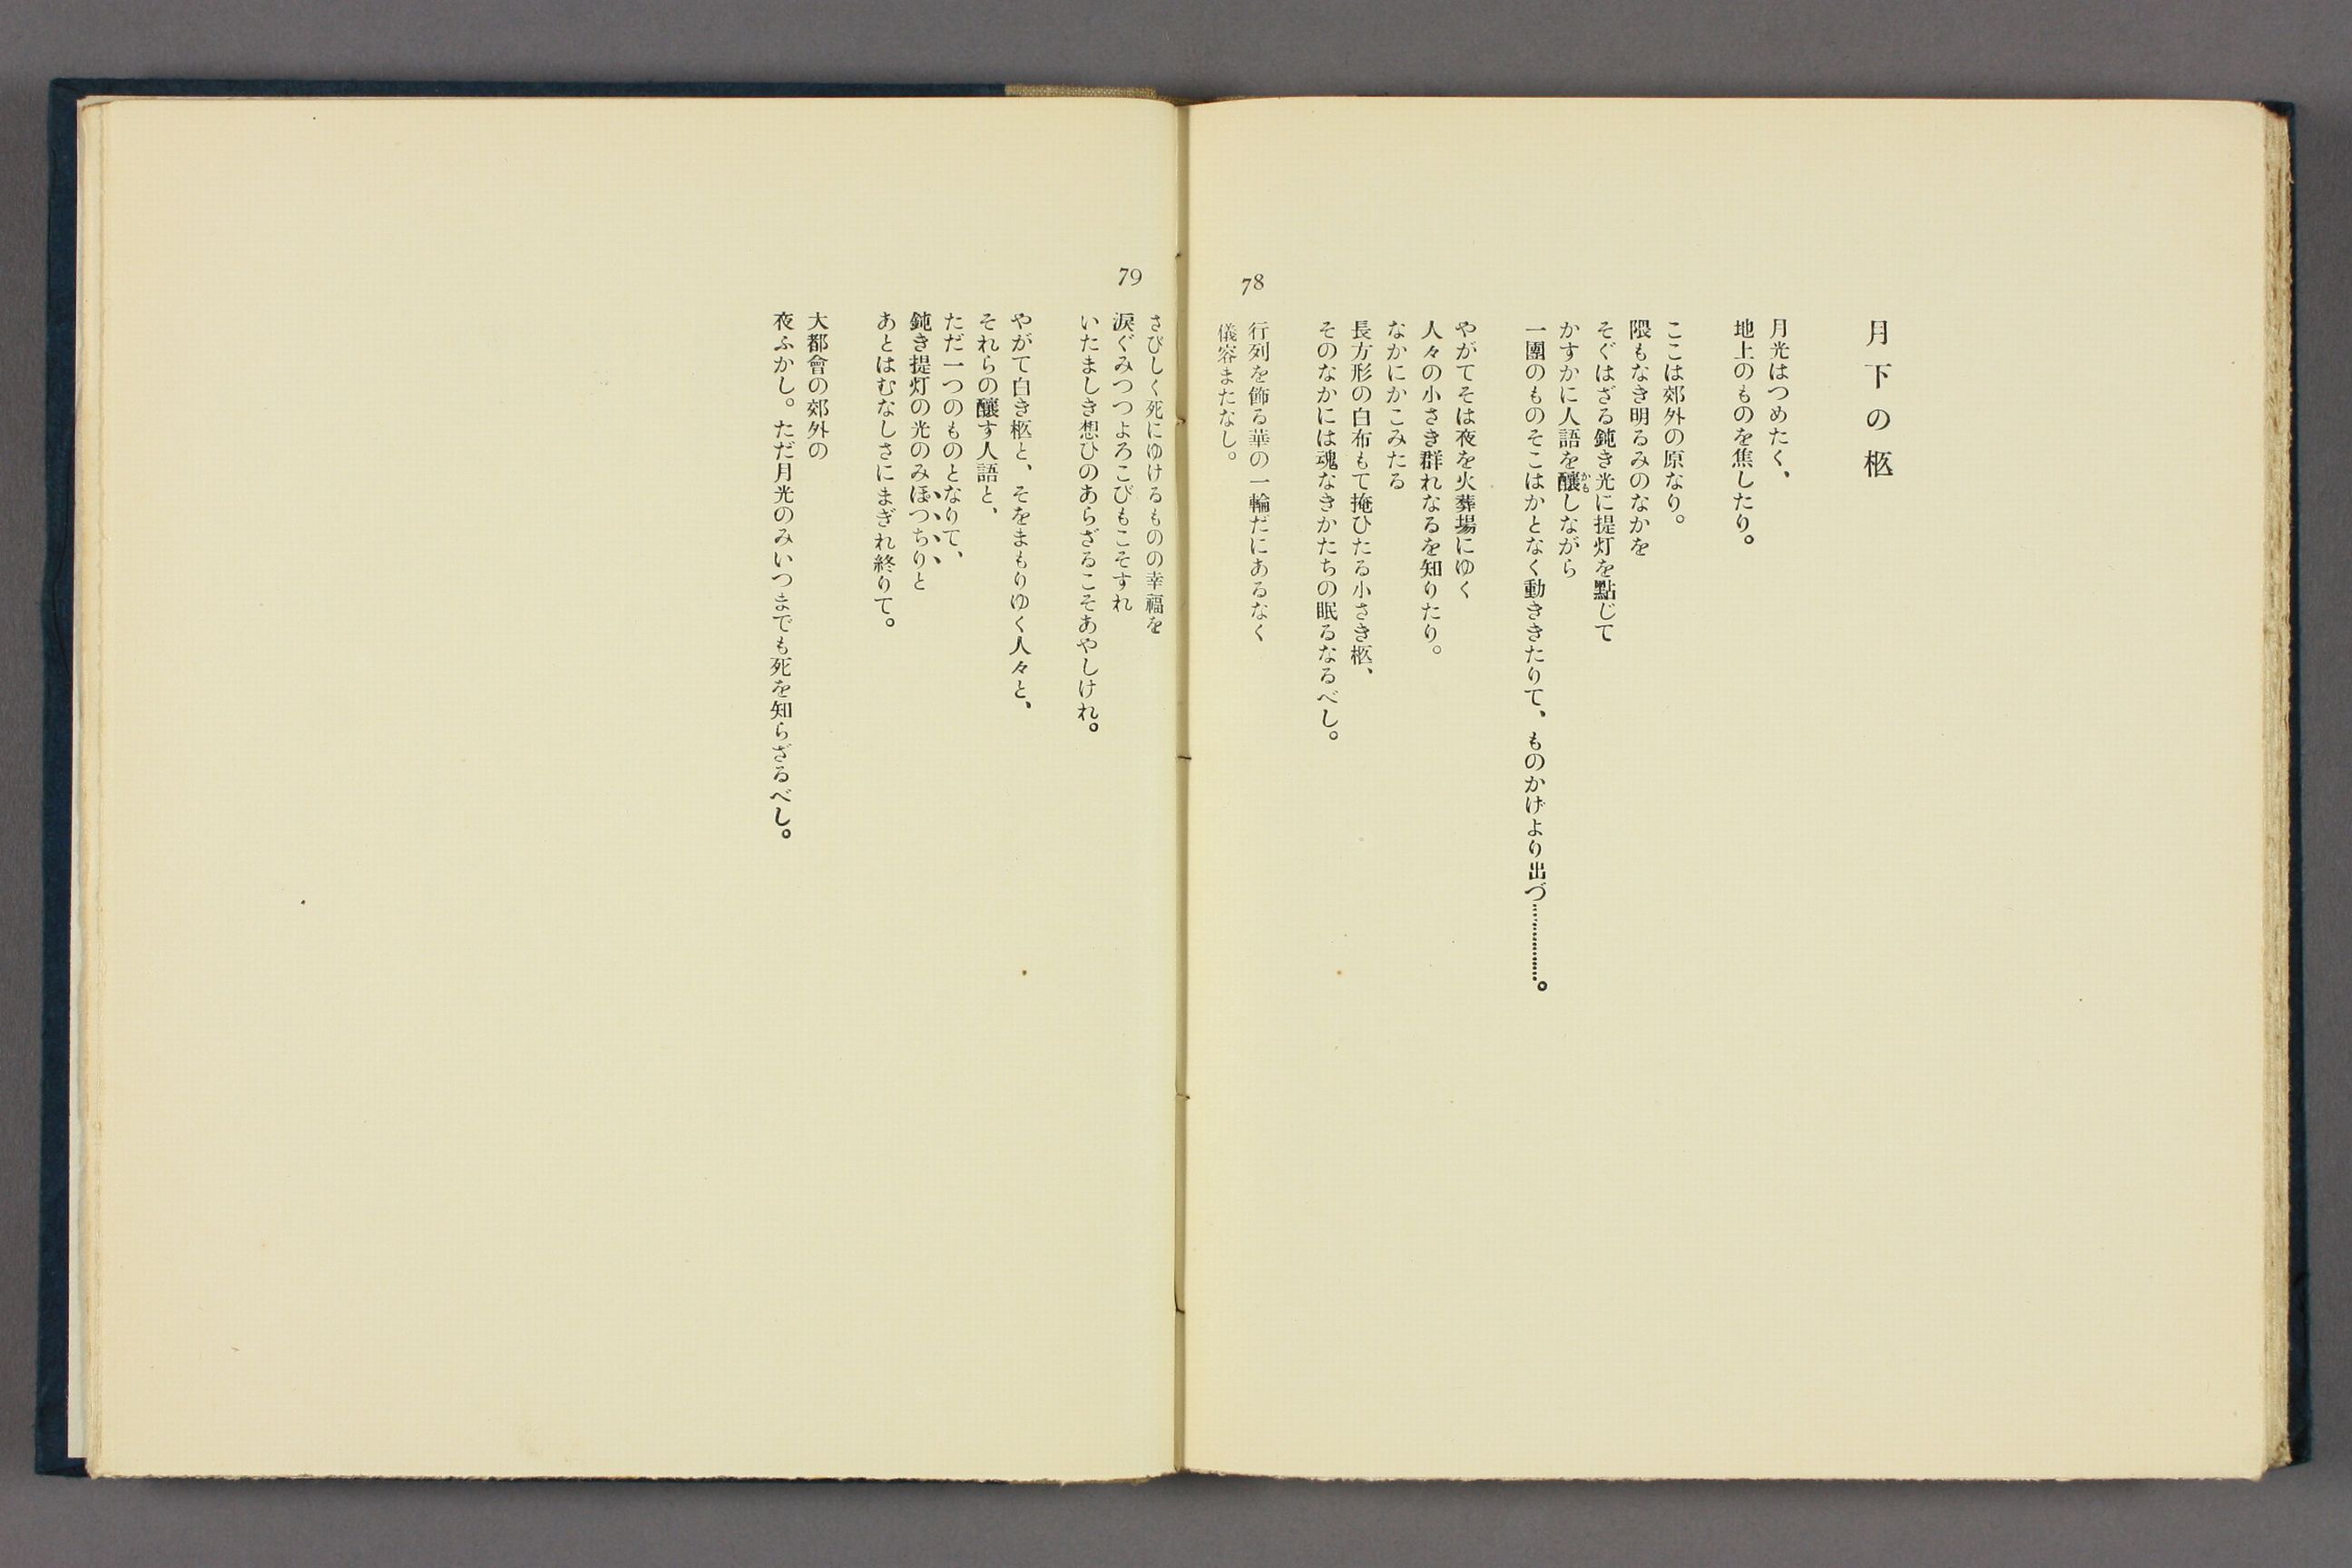 月下の柩
月光はつめたく、
地上のものを焦したり。
ここは郊外の原なり。
隈もなき明るみのなかを
そぐはざる鈍き光に提灯を點じて
かすかに人語を釀しながら
かも
一團のものそこはかとなく動ききたりて、ものかげより出づ…………。
やがてそは夜を火葬場にゆく
人々の小さき群れなるを知りたり。
なかにかこみたる
長方形の白布もて掩ひたる小さき柩、
そのなかには魂なきかたちの眠るなるべし。
行列を飾る華の一輪だにあるなく
儀容またなし。
78
79
さびしく死にゆけるものの幸福を
涙ぐみつつよろこびもこそすれ
いたましき想ひのあらざるこそあやしけれ。
やがて白き柩と、そをまもりゆく人々と、
それらの釀す人語と、
ただ一つのものとなりて、
鈍き提灯の光のみぽつちりと
あとはむなしさにまぎれ終りて。
大都會の郊外の
夜ふかし。ただ月光のみいつまでも死を知らざるべし。